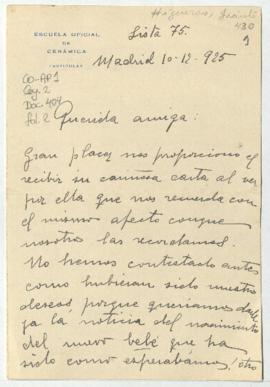 Higueras, Jacinto
430
1
ESCUELA OFICIAL
DE
CERÁMICA
PARTICULAR
Lista 75.
Madrid 10-12-925
CO-AP1
Caj. 2
Doc. 404
fol. 2
Querida amiga:
Gran placer nos proporcionó el
recibir su cariñosa carta al ver
por ella que nos recuerda con
el mismo afecto conque
nosotros las recordamos.
No hemos contestado antes
como hubieran sido nuestros
deseos, porque queriamos darle
ya la noticia del nacimiento
del nuevo bebé que ha
sido como esperábamos ¡otro